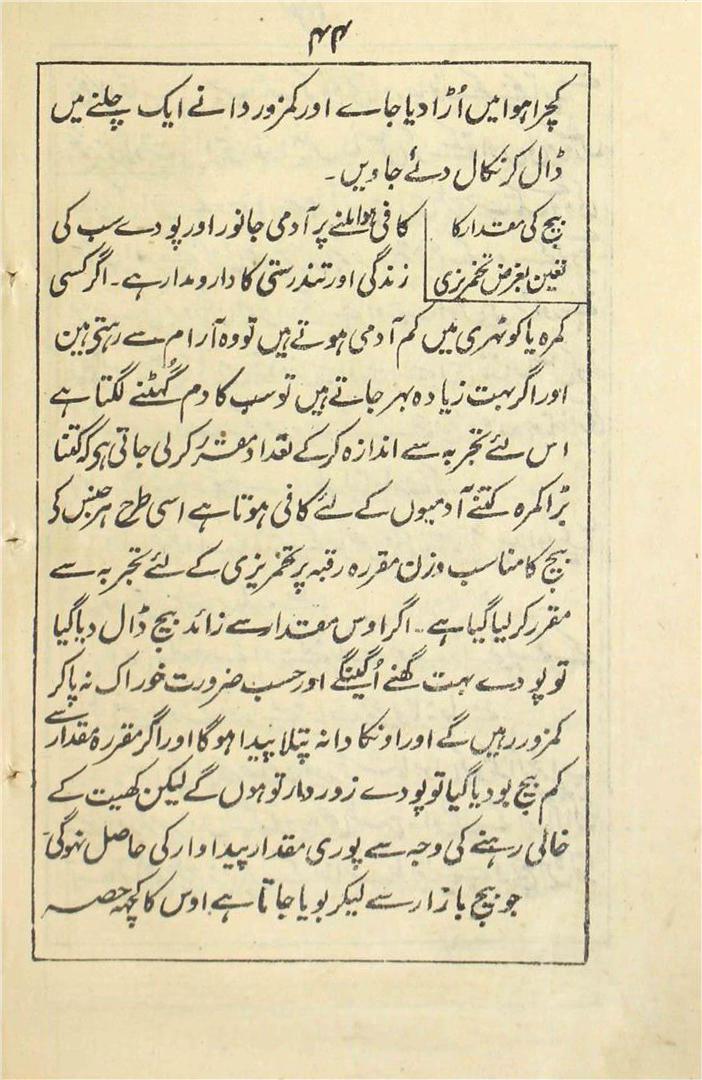 ۴۴
کچرا ہوا میں اُڑا دیا جاے اور کمزور دانے ایک چلنے میں
ڈال کر نکال دئے جاویں۔
بیج کی مقدار کا
تعین بغرض تخمریزی
کافی ہوا ملنے پر آدمی جانور اور پودے سب کی
زندگی اور تندرستی کا دارومدار ہے۔ اگر کسی
کمرہ یا کوٹھری میں کم آدمی ہوتے ہیں تو وہ آرام سے رہتی ہین
اور اگر بہت زیادہ بھر جاتے ہیں تو سب کا دم گُھٹنے لگتا ہے
اس لئے تجربہ سے اندازہ کر کے تعداد مقرر کر لی جاتی ہی کہ کتنا
بڑا کمرہ کتنے آدمیوں کے لئے کافی ہوتا ہے اسی طرح ہر جنس کی
بیج کا مناسب وزن مقررہ رقبہ پر تخمریزی کے لئے تجربہ سے
مقرر کر لیا گیا ہے۔ اگر اوس مقدار سے زائد بیج ڈال دیا گیا
تو پودے بہت گھنے اُگینگے اور حسب ضرورت خوراک نہ پا کر
کمزور رہیں گے اور اونکا دانہ پتلا پیدا ہوگا اور اگر مقررہ مقدار سے
کم بیج بو دیا گیا تو پودے زوردار تو ہوں گے لیکن کھیت کے
خالی رہنے کی وجہ سے پوری مقدار پیداوار کی حاصل نہوگی۔
جو بیج بازار سے لیکر بویا جاتا ہے اوس کا کچھ حصہ